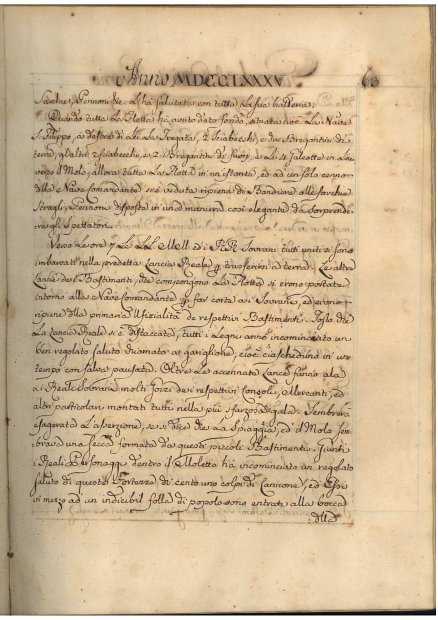 Anno MDCCLXXXV
63
Sartie, Pennoni &c. l'ha salutata con tutta la sua batteria;
Quando tutta la Flotta hà avuto data fondo, situata cioè la Nave
S. Filippo, a destra di Le. la Fregata, 2 Sciabecchi, e due Brigantini di
terra, gl'altri 2 Sciabecchi, e 2 Brigantini di fuori, e le Galeotte in La
verso il Molo, allora tutta la Flotta in un istante, ed ad un solo cenno
della Nave Comandante si è veduta ripiena di Bandiere alle forche
Stragli, e Pennoni disposte in una maniera così elegante da sorprende
re gli spettatori.
Verso le ore 7 le LL. MM. ed i RR. Sovrani tutti uniti si sono
imbarcati nella predetta Lancia Reale p trasferirsi a terra; Le altre
Lance de' Bastimenti, che compongono la Flotta si erano portate
intorno alla Nave Comandante p far corte a i Sovrani, ed erano
ripiene della primaria Uffizialità de respettivi Bastimenti. Tosto che
la Lancia Reale si è distaccata, tutti i Legni anno incominciato un
ben regolato saluto chiamato a gariglione, cioè ciascheduno in un
tempo con salve pausate. Oltre le accennate Lance fanno ala
ai Reali Sobrani molti Gozzi de i respettivi Consoli, Mercanti, ed
altri particolari montati tutti nella più sfarzosa gala. Sembrerà
esagerata l'asserzione, se si dice che la Spiaggia, ed il Molo sem
brava una secca formata da questi piccoli Bastimenti. Giunti
i Reali Personaggi dentro il Moletto hà incominciato un regolato
saluto di questa Fortezza di cento uno colpi di Cannone, ed Essi
in mezzo ad un indicibil folla di popolo sono entrati alla bocca
della